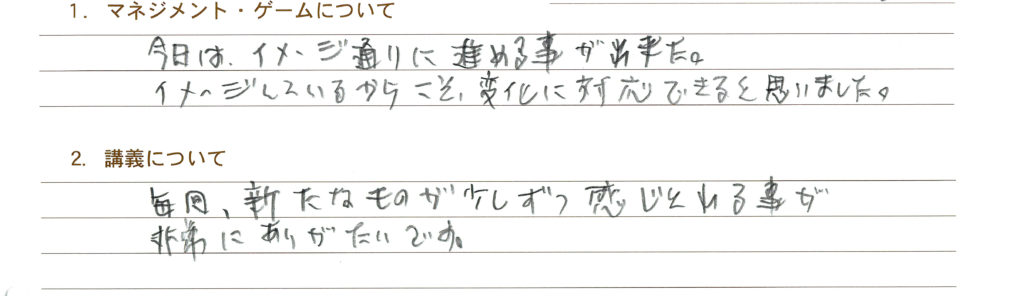 1. マネジメント・ゲームについて
今日は、イメージ通りに進める事が出来た。
イメージしているからこそ、変化に対応できると思いました。
2. 講義について
毎回、新たなものが少しずつ感じとれる事が
非常にありがたいです。